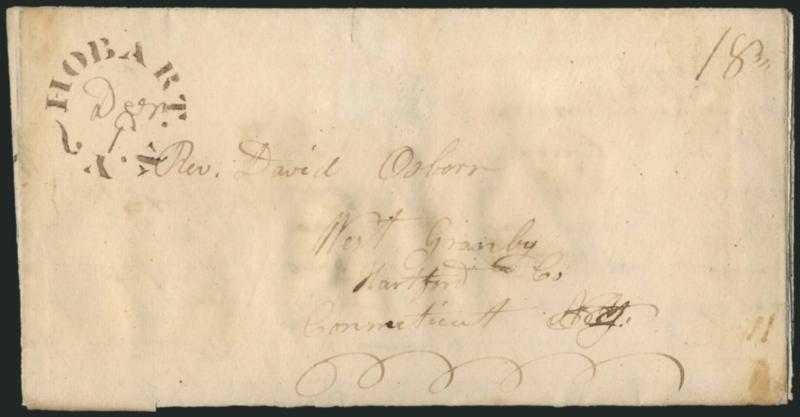 HOBART. N.Y.
18¾
Rev. David Osborn
West Granby
Hartford Co
Connecticut